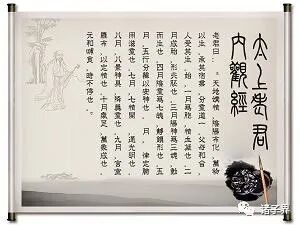 太上老君
內觀經
老君曰：。天地媾精，陰陽布化，萬物
以生。承其宿業，分靈道一。父母和合，
人受其生。始，一月為胞，精血凝也。二
月成胎，形兆胚也。三月陽神為三魂，動
而生也。四月陰靈為七魄，靜鎮形也。五
月，五行分藏以安神也。 月， 律定腑
用滋靈也。七月，七精開 通光明也。
八月，八景神具，降真靈也。九月，宮室
以定精也。十月氣足，萬象成也。
元和哺食，時不停也。
诸子界